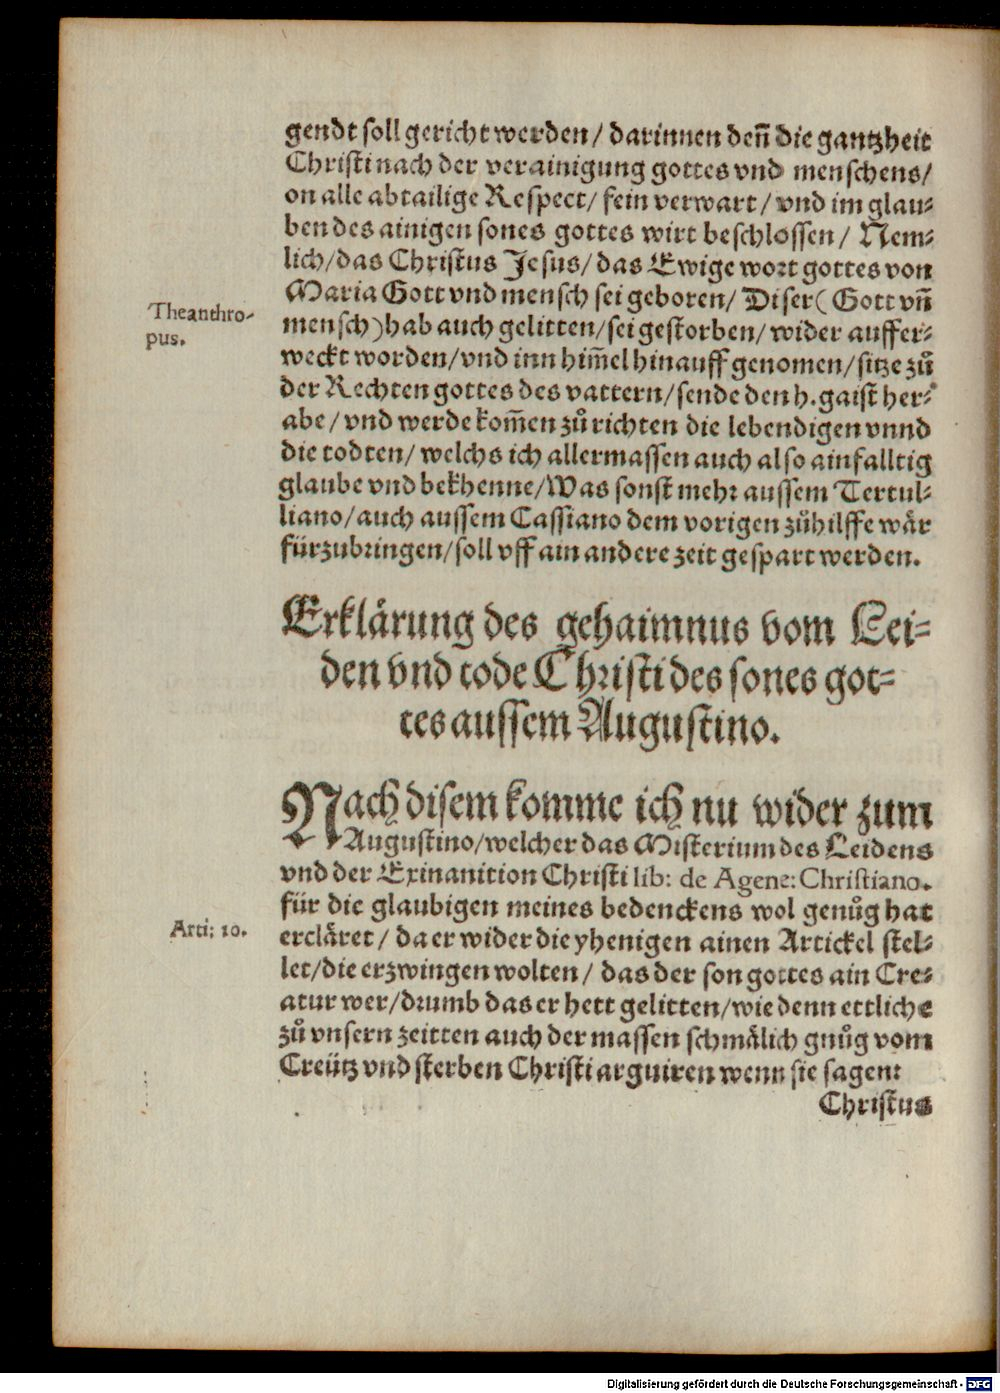 gendt soll gericht werden / darinnen deñ die gantzheit
Christi nach der verainigung gottes vnd menschens /
on alle abtailige Respect / fein verwart / vnd im glau-
ben des ainigen sones gottes wirt beschlossen / Nem-
lich / das Christus Jesus / das Ewige wort gottes von
Maria Gott vnd mensch sei geboren / Diser ( Gott vñ
mensch ) hab auch gelitten / sei gestorben / wider auffer-
weckt worden / vnd inn him̃el hinauff genomen / sitze zuͦ
der Rechten gottes des vattern / sende den h. gaist her-
abe / vnd werde kom̃en zuͦ richten die lebendigen vnnd
die todten / welchs ich allermassen auch also ainfalltig
glaube vnd bekhenne / Was sonst mehr aussem Tertul-
liano / auch aussem Cassiano dem vorigen zuͦhilffe waͤr
fürzubringen / soll vff ain andere zeit gespart werden.
Theanthro-
pus.
Erklaͤrung des gehaimnus vom Lei-
den vnd tode Christi des sones got-
tes aussem Augustino.
Nach disem komme ich nu wider zum
Augustino / welcher das Misterium des Leidens
vnd der Exinanition Christi lib: de Agene: Christiano.
für die glaubigen meines bedenckens wol genuͦg hat
erclaͤret / da er wider die yhenigen ainen Artickel stel-
let / die erzwingen wolten / das der son gottes ain Cre-
atur wer / drumb das er hett gelitten / wie denn ettliche
zuͦ vnsern zeitten auch der massen schmaͤlich gnuͦg vom
Creütz vnd sterben Christi arguiren wenn sie sagen:
Arti: 10.
Christus
Digitalisierung gefördert durch die Deutsche Forschungsgemeinschaft - DFG